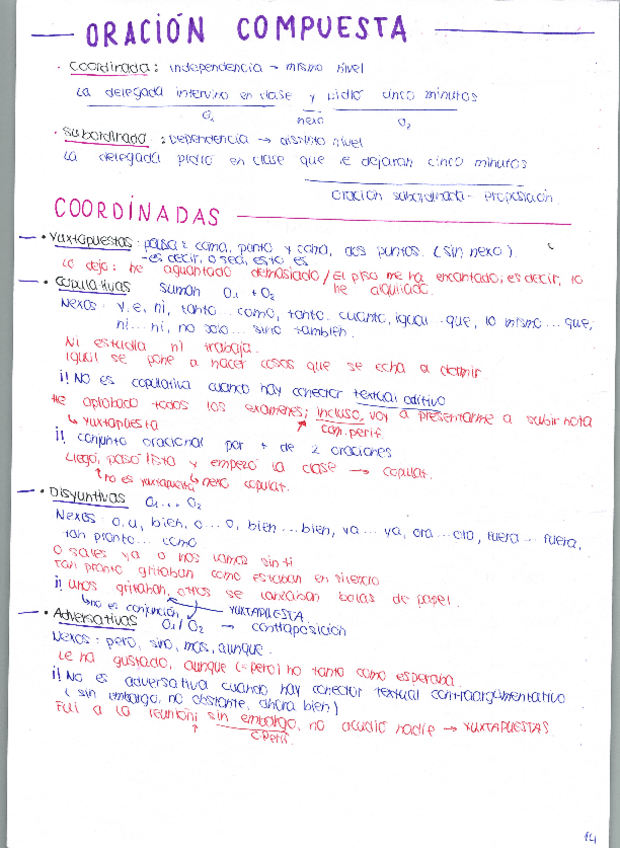 ORACIÓN COMPUESTA
· Coordinada: independencia → mismo nivel
La delegada intervino en clase y pidió cinco minutos
O₁ nexo O₂
· Subordinada: Dependencia → distinto nivel
La delegada pidió en clase que le dejaran cinco minutos
oración subordinada - proposición.
COORDINADAS
• Yuxtapuestas: pausa: coma, punto y coma, dos puntos. (sin nexo).
- es decir, o sea, esto es
Lo dejo: he aguantado demasiado / El piso me ha encantado; es decir, lo
he alquilado.
• Copulativas suman O₁ + O₂
Nexos: y, e, ni, tanto... como, tanto... cuanto, igual... que, lo mismo... que,
ni... ni, no solo... sino también.
Ni estudia ni trabaja.
Igual se pone a hacer cosas que se echa a dormir
¡! NO es copulativa cuando hay conector textual aditivo
He aprobado todos los exámenes; incluso, voy a presentarme a subir nota
↳ yuxtapuesta con. perif.
¡! conjunto oracional por + de 2 oraciones
Llegó, pasó lista y empezó la clase → copulat.
↑ no es yuxtapuesta ↳ nexo copulat.
• Disyuntivas O₁... O₂
Nexos: o, u, bien, o... o, bien... bien, ya... ya, ora... ora, fuera... fuera,
tan pronto... como
O sales ya o nos vamos sin ti.
Tan pronto gritaban como estaban en silencio
¡! Unos gritaban, otros se lanzaban bolas de papel.
↳ no es conjunción YUXTAPUESTA
• Adversativas O₁/O₂ → contraposición
Nexos: pero, sino, mas, aunque.
Le ha gustado, aunque (=pero) no tanto como esperaba.
¡! NO es adversativa cuando hay conector textual contraargumentativo
(sin embargo, no obstante, ahora bien)
Fui a la reunión; sin embargo, no acudió nadie → YUXTAPUESTAS.
↑ c.perif.
14